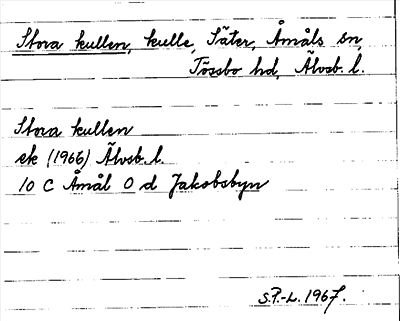 Stora kullen, kulle, Säter, Åmåls sn,
Tössbo hd, Älvsb. l.
Stora kullen
ek (1966) Älvsb. l.
10 C Åmål O d Jakobsbyn
S.P.-L. 1967.